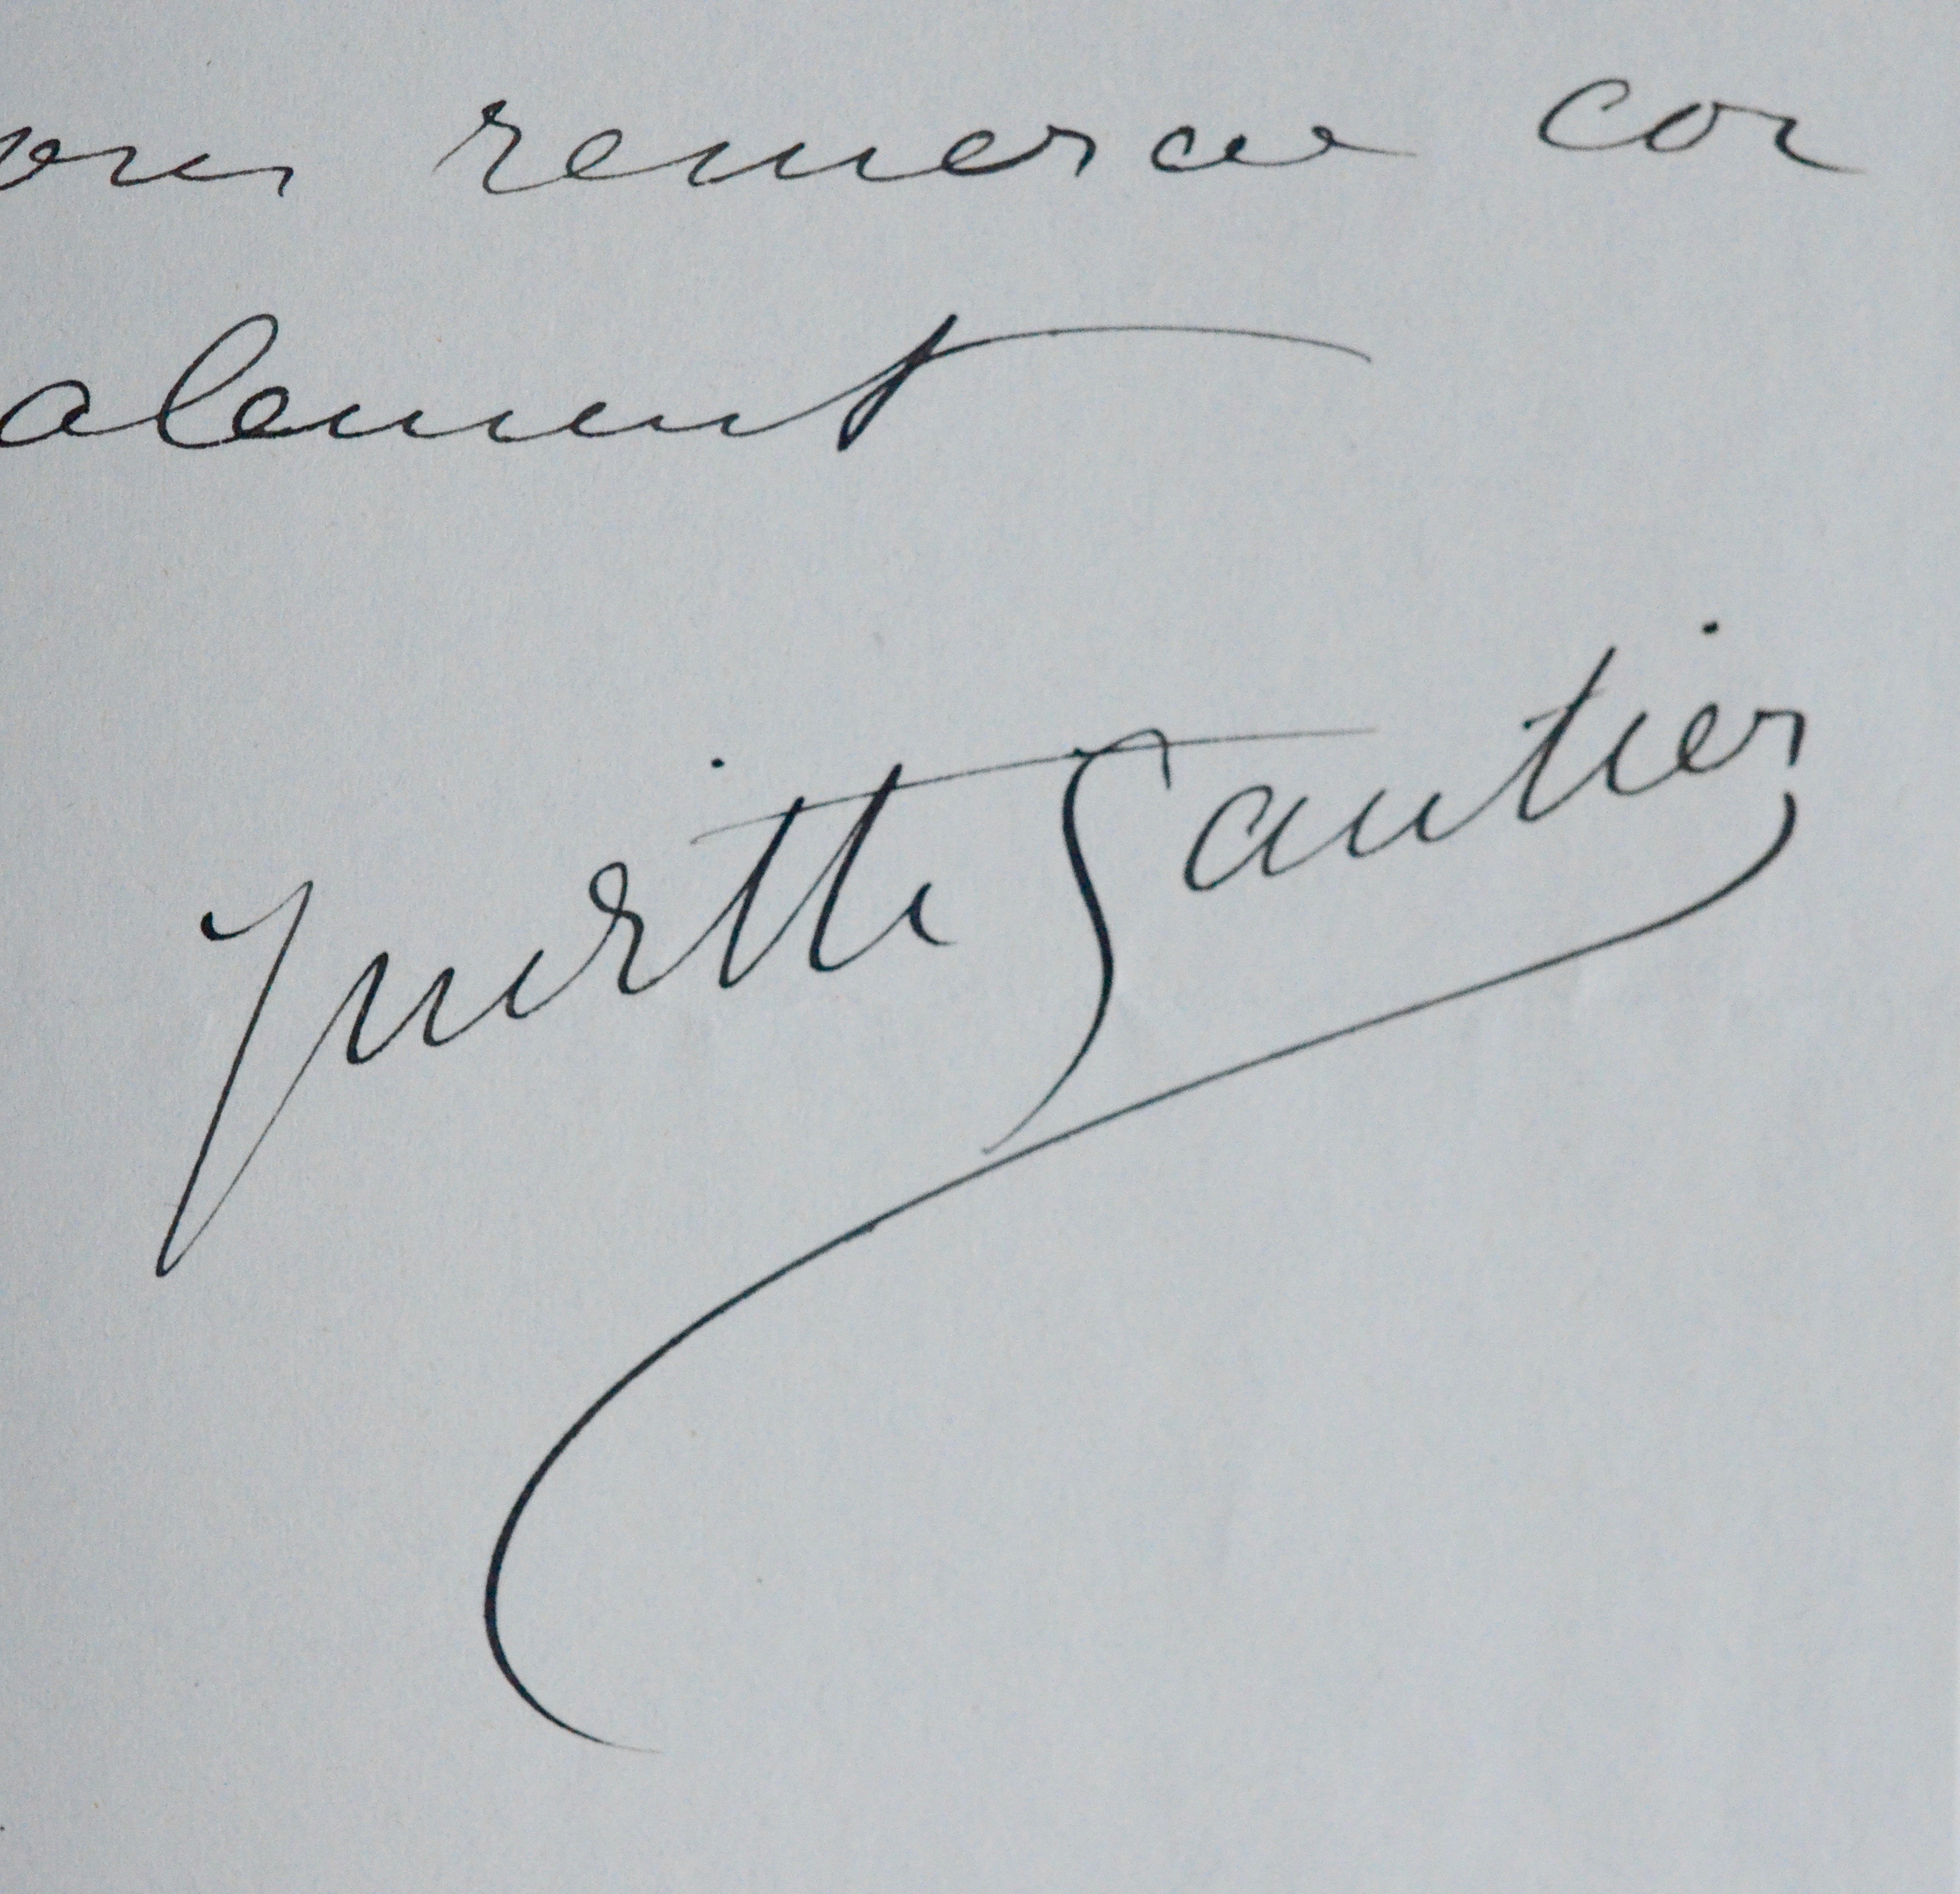 ous remercie cor
alement
Judith Gautier